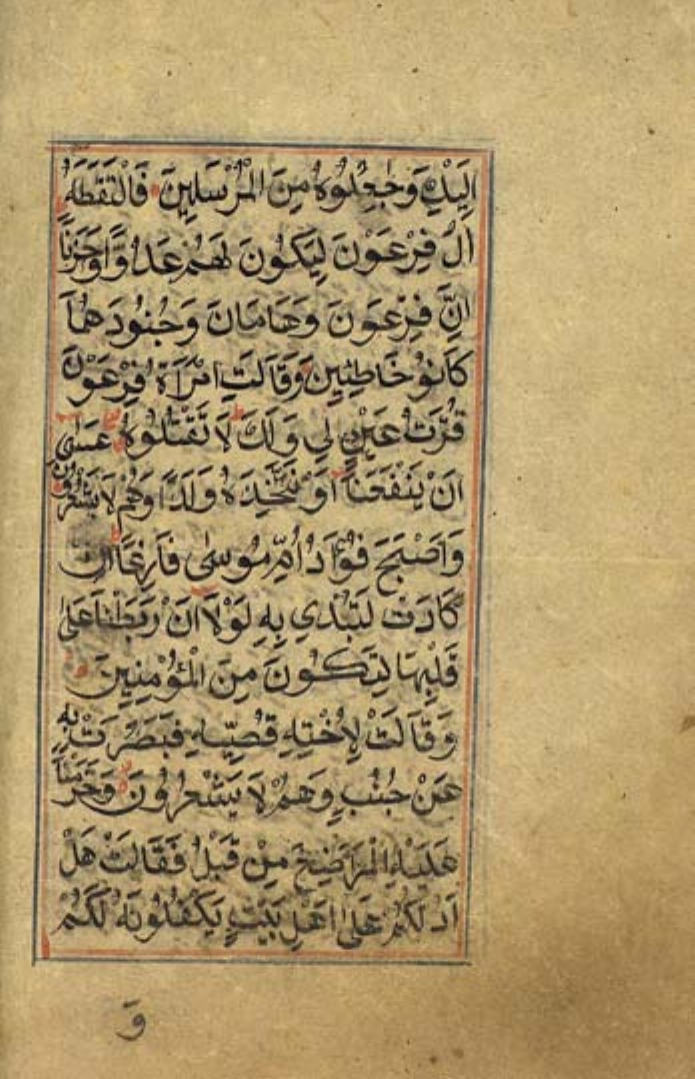 اِلَيْكِ وَجَاعِلُوهُ مِنَ الْمُرْسَلِينَ فَالْتَقَطَهُ
اٰلُ فِرْعَوْنَ لِيَكُونَ لَهُمْ عَدُوًّا وَحَزَنًا
اِنَّ فِرْعَوْنَ وَهَامَانَ وَجُنُودَهُمَا
كَانُوْ خَاطِئِينَ وَقَالَتِ امْرَاَةُ فِرْعَوْنَ
قُرَّتُ عَيْنٍ لِي وَلَكَ لَا تَقْتُلُوهُ عَسٰى
اَنْ يَنْفَعَنَا اَوْ نَتَّخِذَهُ وَلَدًا وَهُمْ لَا يَشْعُرُونَ
وَاَصْبَحَ فُؤَادُ اُمِّ مُوسٰى فَارِغًا اِنْ
كَادَتْ لَتُبْدِي بِهِ لَوْلَا اَنْ رَبَطْنَا عَلٰى
قَلْبِهَا لِتَكُونَ مِنَ الْمُؤْمِنِينَ
وَقَالَتْ لِاُخْتِهِ قُصِّيهِ فَبَصُرَتْ بِهِ
عَنْ جُنُبٍ وَهُمْ لَا يَشْعُرُونَ وَحَرَّمْنَا
عَلَيْهِ الْمَرَاضِعَ مِنْ قَبْلُ فَقَالَتْ هَلْ
اَدُلُّكُمْ عَلٰى اَهْلِ بَيْتٍ يَكْفُلُونَهُ لَكُمْ
وَ